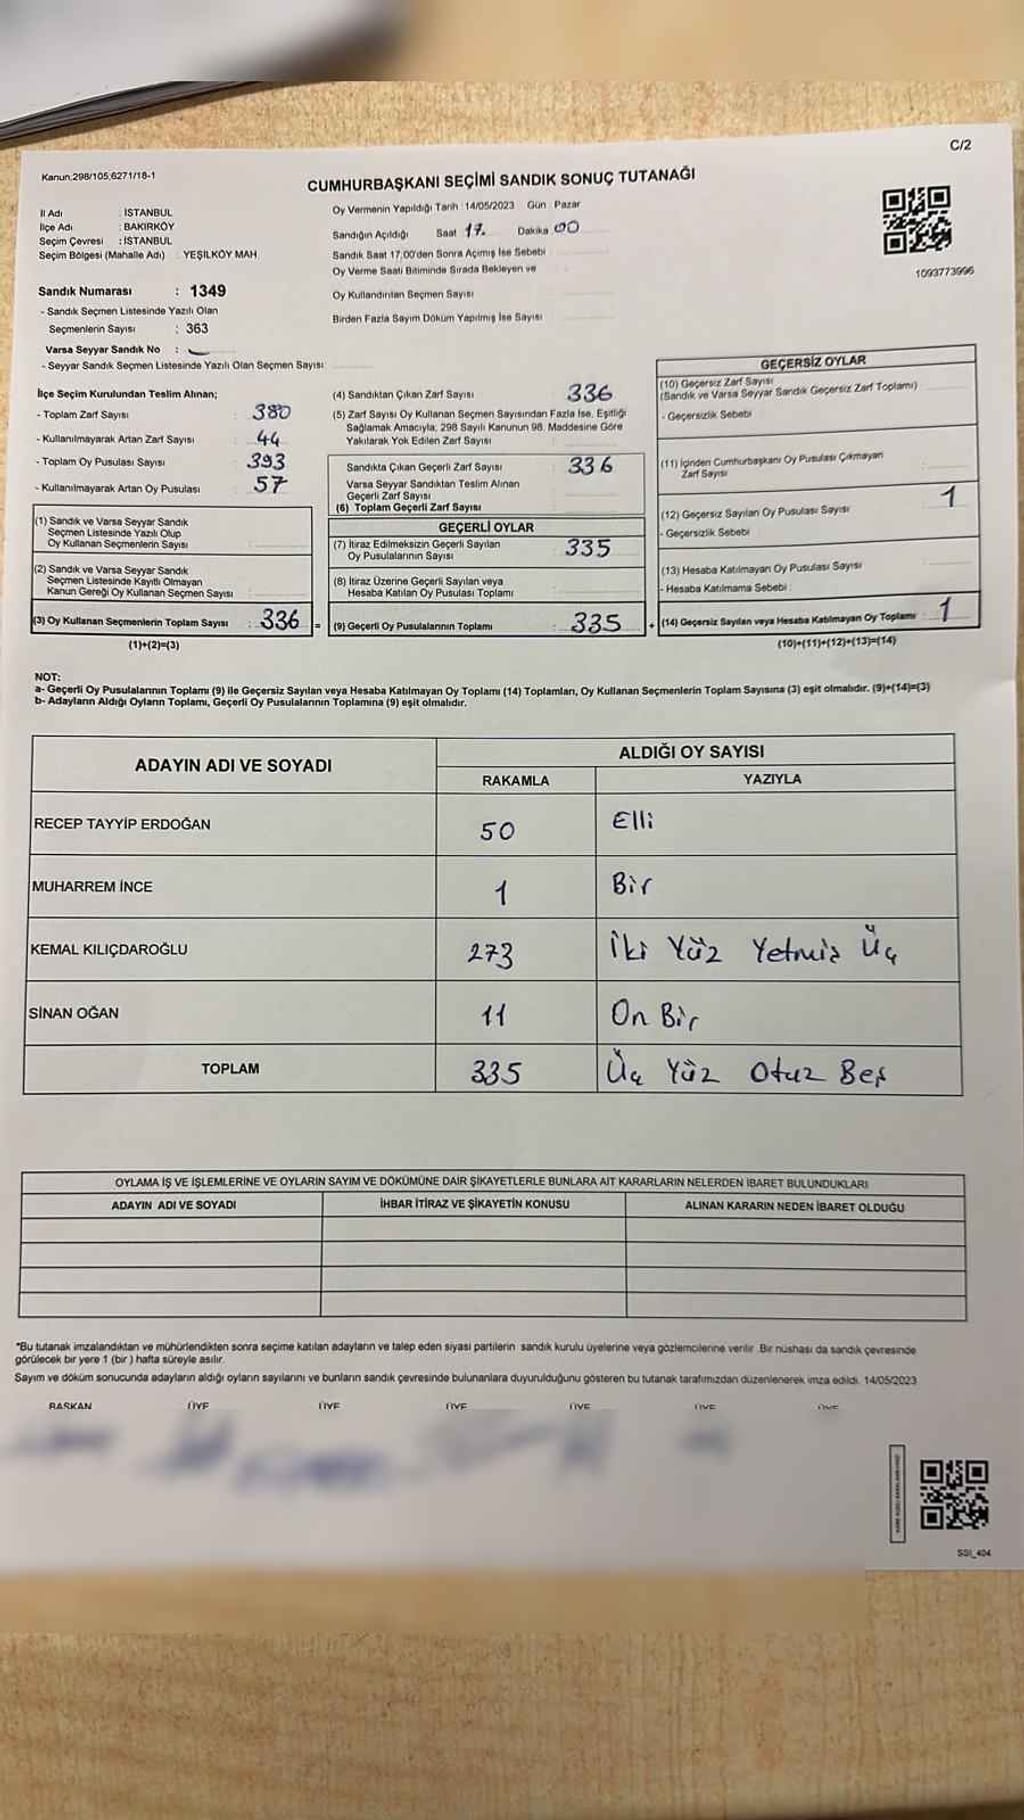 C/2
Kanun;298/105;6271/18-1
CUMHURBAŞKANI SEÇİMİ SANDIK SONUÇ TUTANAĞI
1093773996
İl Adı : İSTANBUL
İlçe Adı : BAKIRKÖY
Seçim Çevresi : İSTANBUL
Seçim Bölgesi (Mahalle Adı) YEŞİLKÖY MAH.
Sandık Numarası : 1349
- Sandık Seçmen Listesinde Yazılı Olan
Seçmenlerin Sayısı : 363
Varsa Seyyar Sandık No :
- Seyyar Sandık Seçmen Listesinde Yazılı Olan Seçmen Sayısı:
Oy Vermenin Yapıldığı Tarih : 14/05/2023 Gün : Pazar
Sandığın Açıldığı Saat 17. Dakika 00
Sandık Saat 17.00'den Sonra Açımış İse Sebebi
Oy Verme Saati Bitiminde Sırada Bekleyen ve
Oy Kullandırılan Seçmen Sayısı
Birden Fazla Sayım Döküm Yapılmış İse Sayısı
İlçe Seçim Kurulundan Teslim Alınan;
- Toplam Zarf Sayısı : 380
- Kullanılmayarak Artan Zarf Sayısı : 44
- Toplam Oy Pusulası Sayısı 393
- Kullanılmayarak Artan Oy Pusulası : 57
(1) Sandık ve Varsa Seyyar Sandık
Seçmen Listesinde Yazılı Olup
Oy Kullanan Seçmenlerin Sayısı
(2) Sandık ve Varsa Seyyar Sandık
Seçmen Listesinde Kayıtlı Olmayan
Kanun Gereği Oy Kullanan Seçmen Sayısı
(3) Oy Kullanan Seçmenlerin Toplam Sayısı : 336 =
(1)+(2)=(3)
(4) Sandıktan Çıkan Zarf Sayısı 336
(5) Zarf Sayısı Oy Kullanan Seçmen Sayısından Fazla İse, Eşitliği
Sağlamak Amacıyla; 298 Sayılı Kanunun 98. Maddesine Göre
Yakılarak Yok Edilen Zarf Sayısı
Sandıkta Çıkan Geçerli Zarf Sayısı 336
Varsa Seyyar Sandıktan Teslim Alınan
Geçerli Zarf Sayısı
(6) Toplam Geçerli Zarf Sayısı
GEÇERLİ OYLAR
(7) İtiraz Edilmeksizin Geçerli Sayılan
Oy Pusulalarının Sayısı 335
(8) İtiraz Üzerine Geçerli Sayılan veya
Hesaba Katılan Oy Pusulası Toplamı
(9) Geçerli Oy Pusulalarının Toplamı : 335 +
GEÇERSİZ OYLAR
(10) Geçersiz Zarf Sayısı
(Sandık ve Varsa Seyyar Sandık Geçersiz Zarf Toplamı)
- Geçersizlik Sebebi
(11) İçinden Cumhurbaşkanı Oy Pusulası Çıkmayan
Zarf Sayısı
(12) Geçersiz Sayılan Oy Pusulası Sayısı 1
- Geçersizlik Sebebi
(13) Hesaba Katılmayan Oy Pusulası Sayısı
- Hesaba Katılmama Sebebi :
(14) Geçersiz Sayılan veya Hesaba Katılmayan Oy Toplamı 1
(10)+(11)+(12)+(13)=(14)
NOT:
a- Geçerli Oy Pusulalarının Toplamı (9) ile Geçersiz Sayılan veya Hesaba Katılmayan Oy Toplamı (14) Toplamları, Oy Kullanan Seçmenlerin Toplam Sayısına (3) eşit olmalıdır. (9)+(14)=(3)
b- Adayların Aldığı Oyların Toplamı, Geçerli Oy Pusulalarının Toplamına (9) eşit olmalıdır.
ADAYIN ADI VE SOYADI ALDIĞI OY SAYISI
RAKAMLA YAZIYLA
RECEP TAYYİP ERDOĞAN 50 Elli
MUHARREM İNCE 1 Bir
KEMAL KILIÇDAROĞLU 273 İki Yüz Yetmiş Üç
SİNAN OĞAN 11 On Bir
TOPLAM 335 Üç Yüz Otuz Beş
OYLAMA İŞ VE İŞLEMLERİNE VE OYLARIN SAYIM VE DÖKÜMÜNE DAİR ŞİKAYETLERLE BUNLARA AİT KARARLARIN NELERDEN İBARET BULUNDUKLARI
ADAYIN ADI VE SOYADI İHBAR İTİRAZ VE ŞİKAYETİN KONUSU ALINAN KARARIN NEDEN İBARET OLDUĞU
*Bu tutanak imzalandıktan ve mühürlendikten sonra seçime katılan adayların ve talep eden siyasi partilerin sandık kurulu üyelerine veya gözlemcilerine verilir. Bir nüshası da sandık çevresinde
görülecek bir yere 1 (bir) hafta süreyle asılır.
Sayım ve döküm sonucunda adayların aldığı oyların sayılarını ve bunların sandık çevresinde bulunanlara duyurulduğunu gösteren bu tutanak tarafımızdan düzenlenerek imza edildi. 14/05/2023
BAŞKAN ÜYE ÜYE ÜYE ÜYE ÜYE ÜYE
SSI_404